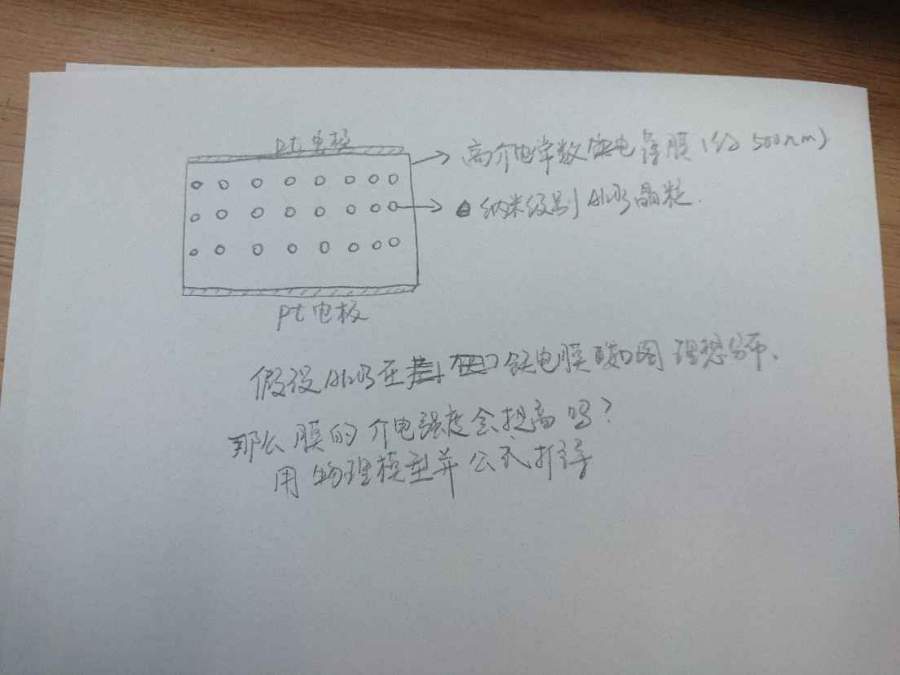 Pt电极
高介电常数铁电薄膜(约500nm)
纳米级别Al2O3晶粒.
Pt电极
假设Al2O3在铁电膜中如图理想分布.
那么膜的介电强度会提高吗?
用物理模型并公式推导